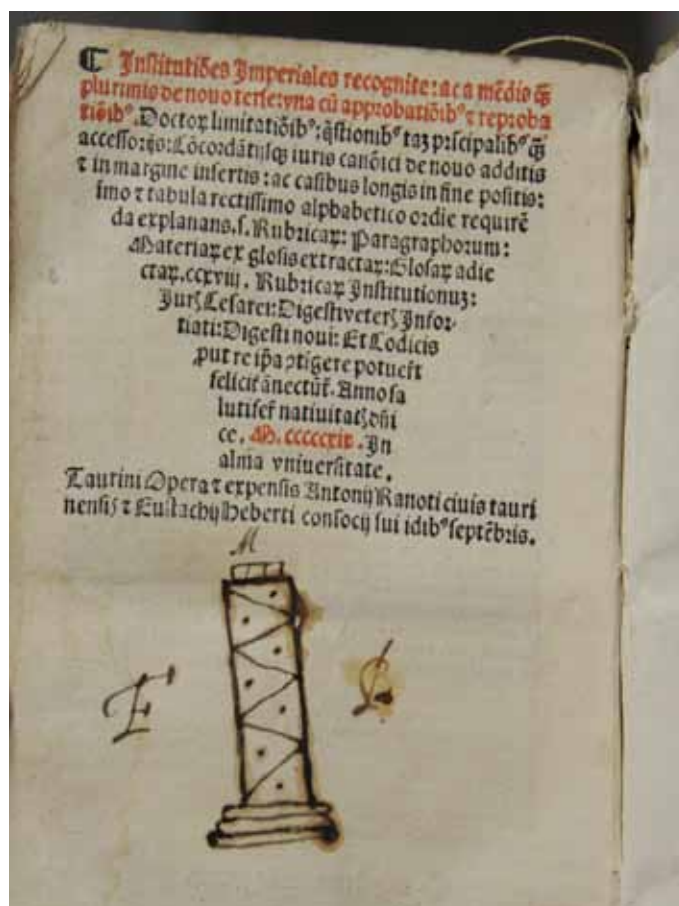 Institutiões Imperiales recognite: ac a mẽdis q̃
plurimis de nouo terse: vna cũ approbatiõibꝰ ⁊ reproba
tiõibꝰ. Doctoꝝ limitatiõibꝰ: q̃stionibꝰ taꝫ prĩcipalibꝰ q̃
accessorijs: Cõcordãtijsqꝫ iuris canõici de nouo additis
⁊ in margine insertis: ac casibus longis in fine positis:
imo ⁊ tabula rectissimo alphabetico ordie requirẽ
da explanans. s. Rubricaꝝ: Paragraphorum:
Materiaꝝ ex glosis extractaꝝ: Glosaꝝ adie
ctaꝝ. ccxviij. Rubricaꝝ Institutionuꝫ:
Jurꝭ Cesarei: Digesti veterꝭ Infor-
tiati: Digesti noui: Et Codicis
ꝓut re ip̃a ꝯtigere potuer̃t
felicit̃ ãnectũt̃. Anno sa
lutifer̃ natiuitatꝭ dñi
ce. M. ccccc In
alma vniuersitate.
Taurini Opera ⁊ expensis Antonij Ranoti ciuis tauri
nensis ⁊ Eustachij Heberti consocij sui idibꝰ septẽbris.
M
F